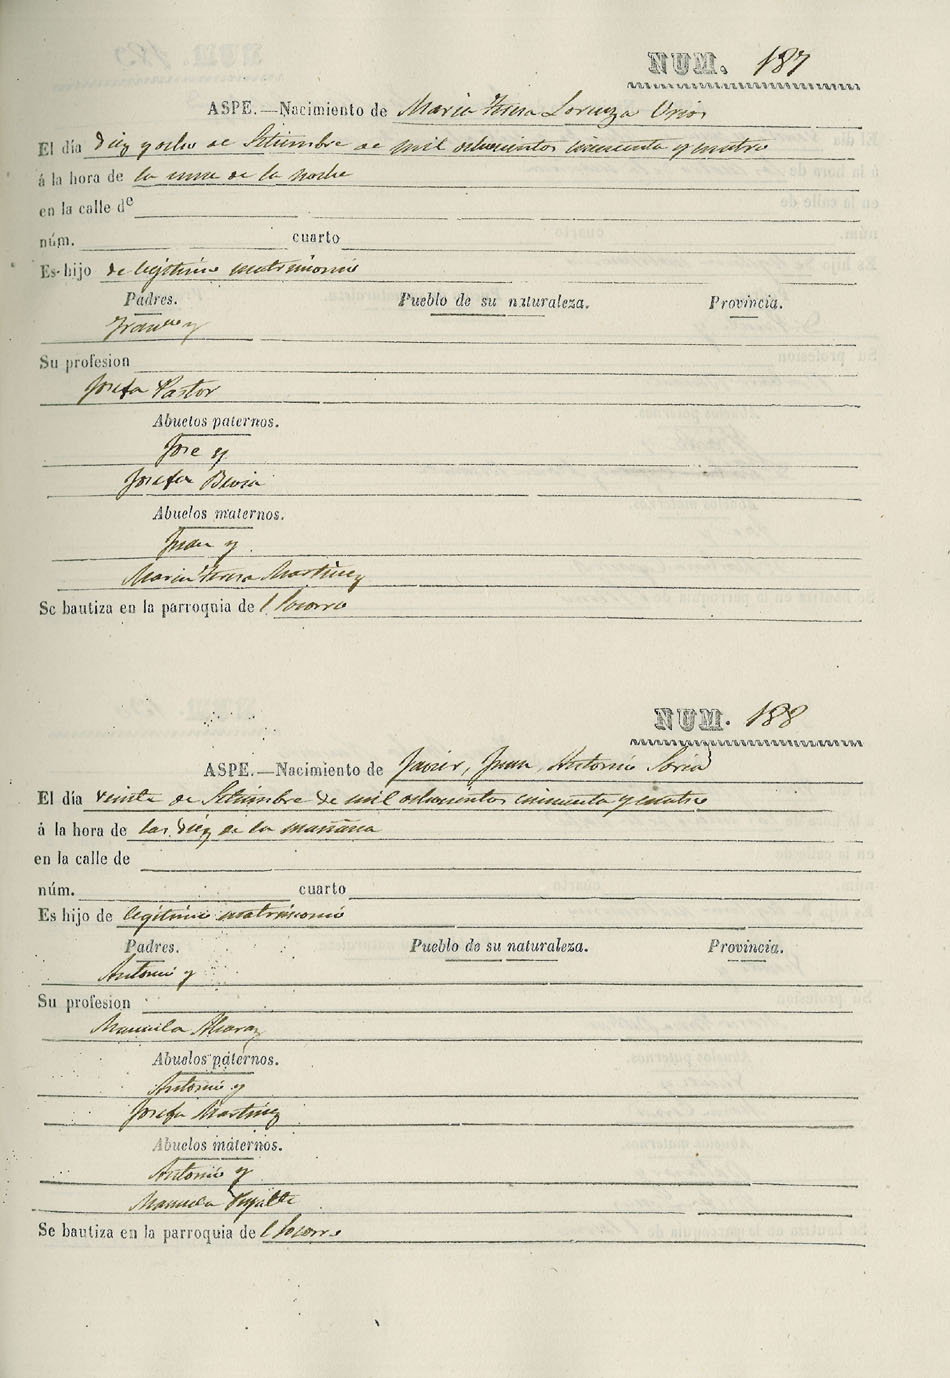 NUM. 187
ASPE.—Nacimiento de Maria Teresa Lorenza Urios
El día diez y ocho de Setiembre de mil ochocientos cincuenta y cuatro
á la hora de la una de la noche
en la calle de
núm. cuarto
Es hijo de legitimo matrimonio
Padres. Pueblo de su naturaleza. Provincia.
Franco y
Su profesion
Josefa Pastor
Abuelos paternos.
Jose y
Josefa
Abuelos maternos.
Juan y
Maria Teresa Martinez
Se bautiza en la parroquia del Socorro
NUM. 188
ASPE.—Nacimiento de Javier, Juan, Antonio Soria
El día veinte de Setiembre de mil ochocientos cincuenta y cuatro
á la hora de las diez de la mañana
en la calle de
núm. cuarto
Es hijo de legitimo matrimonio
Padres. Pueblo de su naturaleza. Provincia.
Antonio y
Su profesion
Manuela Alcaraz
Abuelos paternos.
Antonio y
Josefa Martinez
Abuelos maternos.
Antonio y
Manuela
Se bautiza en la parroquia del Socorro